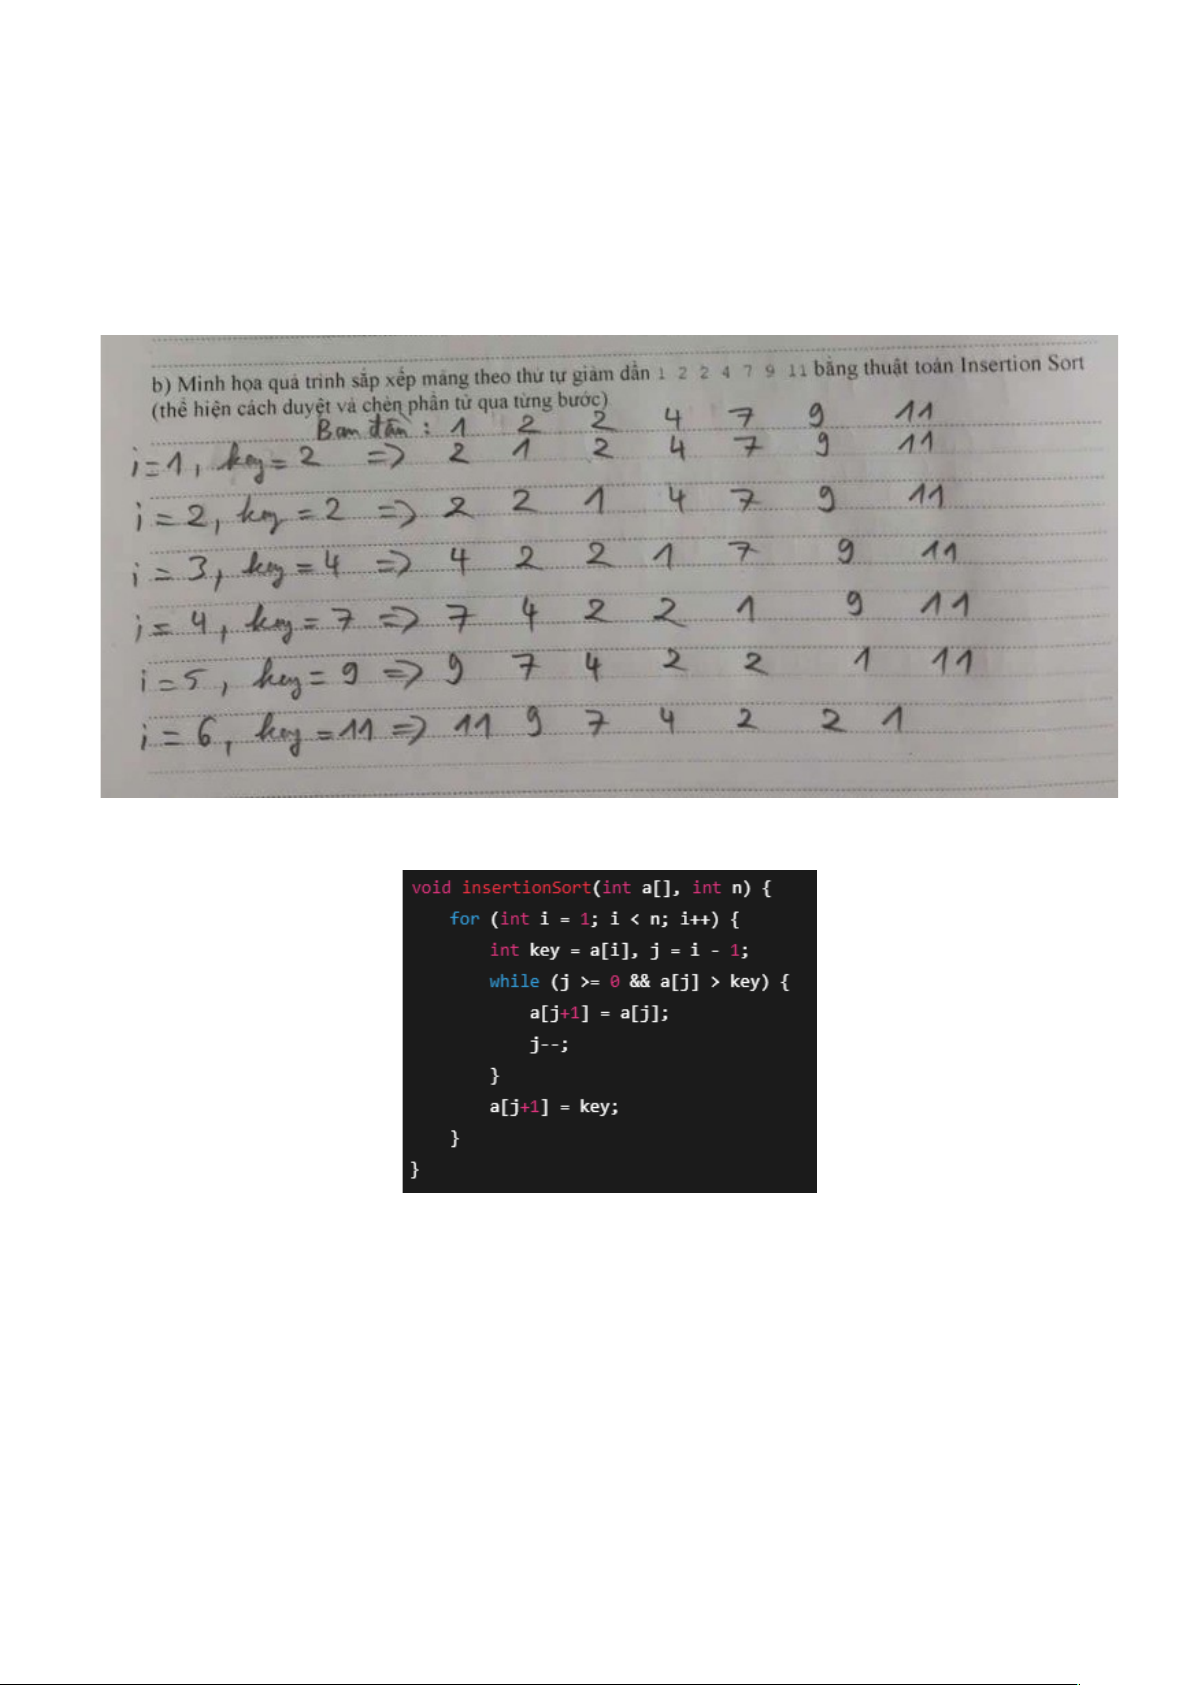 b) Minh họa quá trình sắp xếp mảng theo thứ tự giảm dần 1 2 2 4 7 9 11 bằng thuật toán Insertion Sort
(thể hiện cách duyệt và chèn phần tử qua từng bước)
Ban đầu : 1 2 2 4 7 9 11
i=1, key= 2 => 2 1 2 4 7 9 11
i = 2, key = 2 => 2 2 1 4 7 9 11
i = 3, key = 4 => 4 2 2 1 7 9 11
i = 4, key = 7 => 7 4 2 2 1 9 11
i = 5, key = 9 => 9 7 4 2 2 1 11
i = 6, key = 11 => 11 9 7 4 2 2 1
void insertionSort(int a[], int n) {
for (int i = 1; i < n; i++) {
int key = a[i], j = i - 1;
while (j >= 0 && a[j] > key) {
a[j+1] = a[j];
j--;
}
a[j+1] = key;
}
}